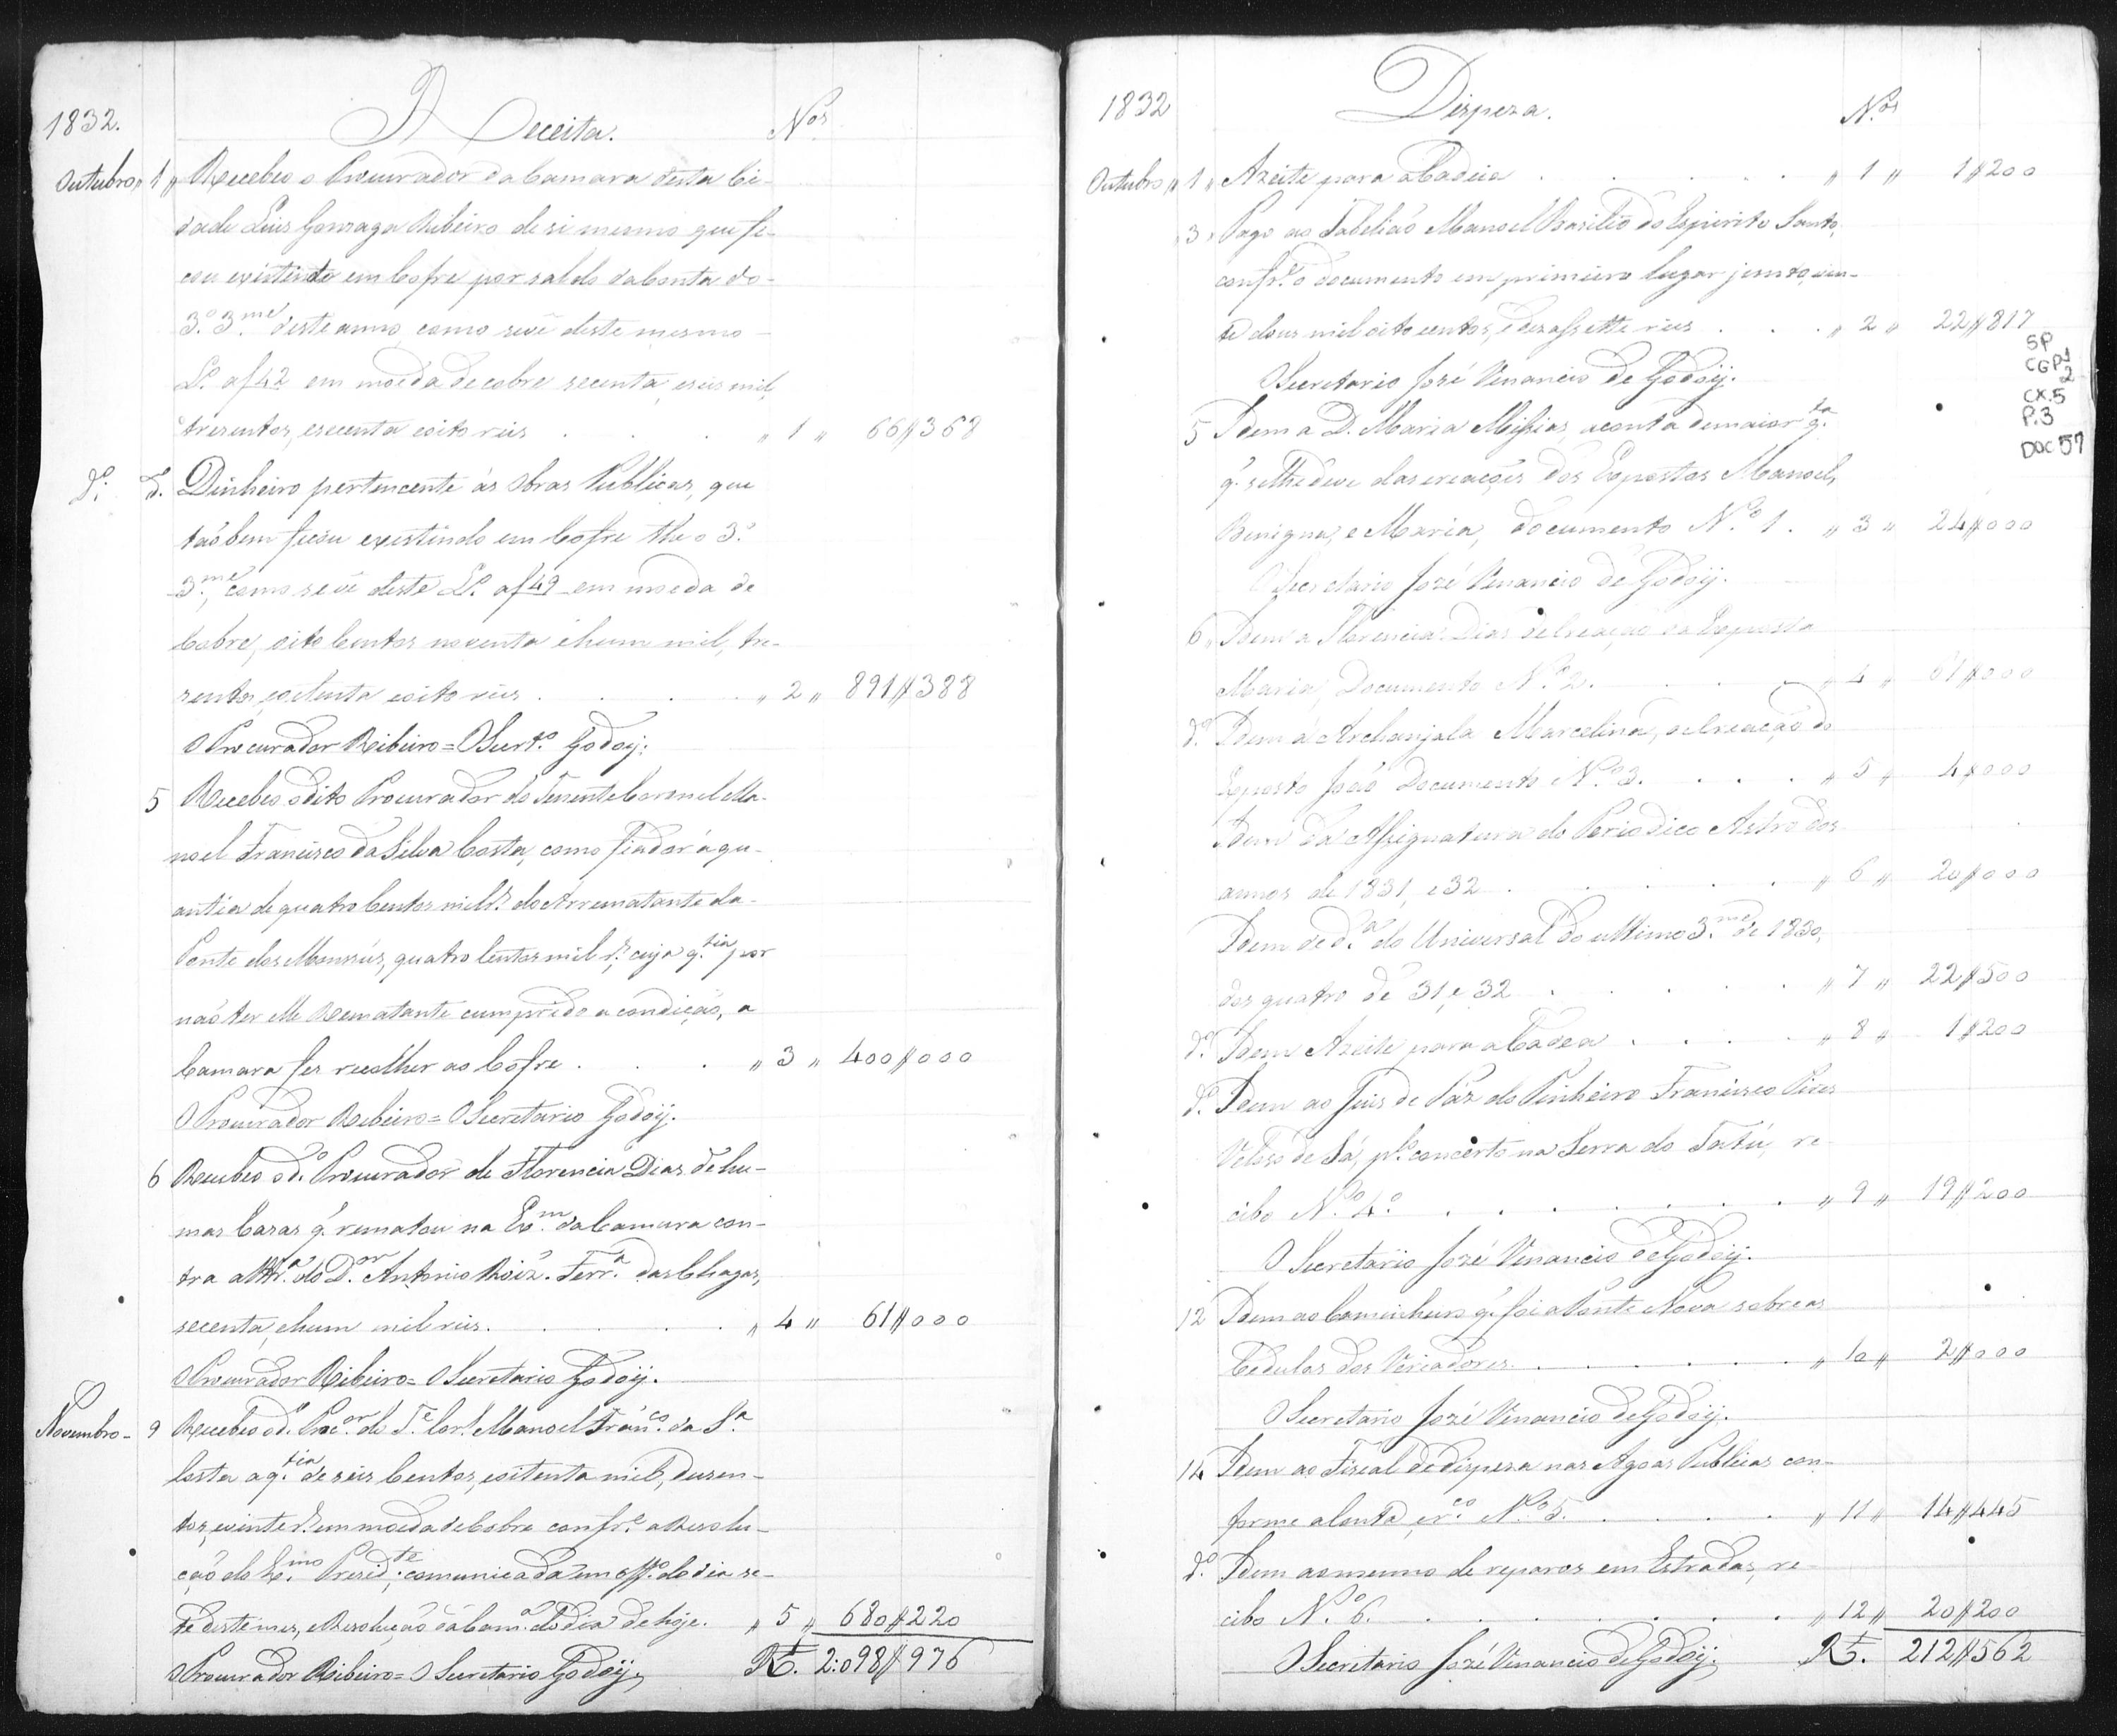 1832. Receita. N.os
Outubro " 1 " Recebeo o Procurador da Camara desta Ci-
dade Luis Gonzaga Ribeiro de si mesmo que fi-
cou existindo em Cofre por saldo da Conta do
3.º 3.me deste anno, como se vê deste mesmo
L.º a f 42 em moeda de cobre secenta, e seis mil,
tresentos, e secenta e oito reis . . . " 1 " 66$368
D.º D. Dinheiro pertencente ás Obras Publicas, que
taõbem ficou existindo em Cofre the o 3.º
3.me, como se vê deste L.º a f 49 em moeda de
Cobre, oito Centos noventa e hum mil, tre-
zentos, e oitenta e oito reis . . . " 2 " 891$388
O Procurador Ribeiro = O Secrt.º Godoij.
5 Recebeo o dito Procurador do Tenente Coronel Ma-
noel Francisco da Silva Costa, como fiador á qu-
antia de quatro Centos mil r.s do Arrematante da
Ponte dos Monsús, quatro Centos mil r.s, cuja q.tia por
naõ ter elle Rematante cumprido a condiçaõ, a
Camara fes recolher ao Cofre . . . " 3 " 400$000
O Procurador Ribeiro = O Secretario Godoij.
6 Recebeo o d.º Procurador de Florencia Dias de hu-
mas Casas q. rematou na Ex.m da Camara con-
tra a do D.or Antonio Roiz. Ferr.a das Chagas,
secenta, e hum mil reis. . . . " 4 " 61$000
O Procurador Ribeiro = O Secretario Godoij.
Novembro - 9 Recebeo o d.º Proc.or do T.e Cor.l Manoel Fran.co da S.a
Costa a q.tia de seis Centos, e oitenta mil, dusen-
tos, e vinte r.s em moeda de Cobre conf.e a Resolu-
çaõ do Ex.mo Presid.te, comunicada em off.º do dia se-
te deste mes, e Resoluçaõ da Cam.a do dia de hoje. " 5 " 680$220
O Procurador Ribeiro = O Secretario Godoij, R.s 2:098$976
1832 Dispeza. N.os
Outubro " 1 " Azeite para a Cadeia . . . " 1 " 1$200
" 3 " Pago ao Tabeliaõ Manoel Basilio do Espirito Santo,
conf.e o documento em primeiro lugar junto, vin-
te dous mil oito centos, e desassette reis . . . " 2 " 22$817
O Secretario José Venancio de Godoij.
5 Idem a D. Maria Messias, a conta de maior q.ta
q. se lhe deve das creações dos Expostos Manoel,
Benigna, e Maria, documento N.º 1. " 3 " 24$000
O Secretario José Venancio de Godoij.
6 " Idem a Florencia Dias de creaçaõ da Exposta
Maria, Documento N.º 2. . . . " 4 " 61$000
d.º Idem á Archanjala Marcelina, de creaçaõ do
Exposto Joaõ Documento N.º 3. . . . " 5 " 4$000
Idem da Assignatura do Periodico Astro dos
annos de 1831, e 32 . . . " 6 " 20$000
Idem de d.a do Universal do ultimo 3.me de 1830,
dos quatro de 31, e 32 . . . " 7 " 22$500
d.º Idem Azeite para a Cadea . . . " 8 " 1$200
d.º Idem ao Juis de Páz do Pinheiro Francisco Pires
Veloso de Sá, p.lo concerto na Serra do Tatú, re-
cibo N.º 4.º . . . " 9 " 19$200
O Secretario José Venancio de Godoij.
12 Idem ao Caminheiro q. foi a Ponte Nova sobre as
Cedulas dos Vereadores . . . " 10 " 2$000
O Secretario José Venancio de Godoij.
14 Idem ao Fiscal de dispeza nas Agoas Publicas con-
forme a Conta, e r.co N.º 5. . . . " 11 " 14$445
d.º Idem ao mesmo de reparos em Estradas, re-
cibo N.º 6. . . . " 12 " 20$200
O Secretario José Venancio de Godoij, R.s 212$562
SP
CGP 1
2
CX.5
P.3
DOC 57